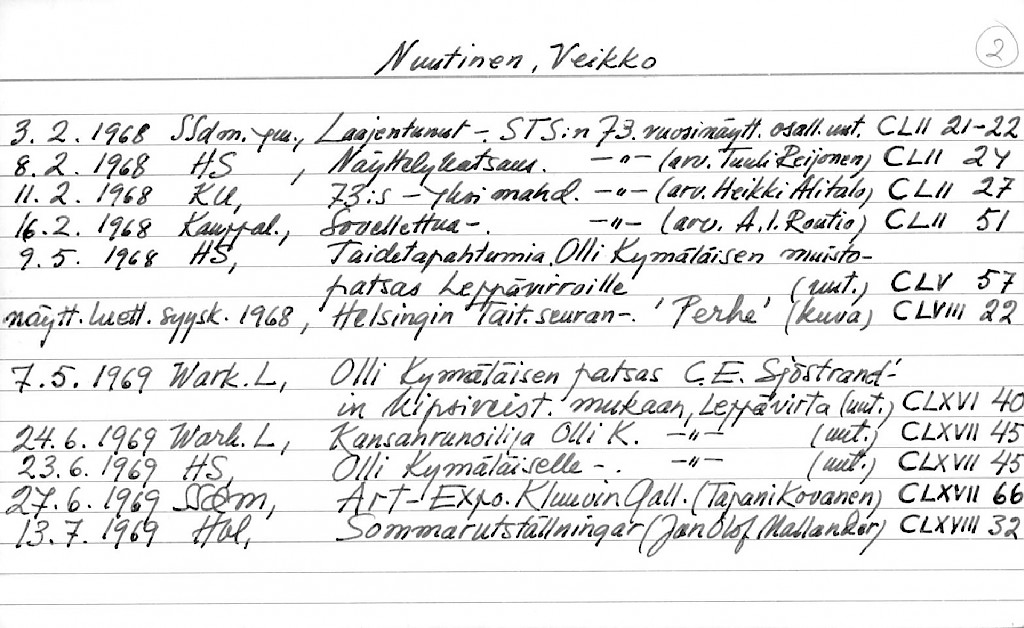 2
Nuutinen, Veikko
3. 2. 1968 SSdm. ym., Laajentunut - STS:n 73. vuosinäytt. osall. uut. CLII 21-22
8. 2. 1968 HS, Näyttelykatsaus. -"- (arv. Tuuli Reijonen) CLII 24
11. 2. 1968 KU, 73:s - yksi mahd. -"- (arv. Heikki Alitalo) CLII 27
16. 2. 1968 Kauppal., Sovellettua -. -"- (arv. A.I. Routio) CLII 51
9. 5. 1968 HS, Taidetapahtumia. Olli Kymäläisen muisto-
patsas Leppävirroille (uut.) CLV 57
näytt. luett. syysk. 1968, Helsingin Tait.seuran -. 'Perhe' (kuva) CLVIII 22
7. 5. 1969 Wark. L, Olli Kymäläisen patsas C.E. Sjöstrand'
in kipsiveist. mukaan, Leppävirta (uut.) CLXVI 40
24. 6. 1969 Wark. L, Kansanrunoilija Olli K. -"- (uut.) CLXVII 45
23. 6. 1969 HS, Olli Kymäläiselle -. -"- (uut.) CLXVII 45
27. 6. 1969 SSdm, Art - Expo. Kluuvin Gall. (Tapani Kovanen) CLXVII 66
13. 7. 1969 Hbl, Sommarutställningar (Jan Olof Mallander) CLXVIII 32